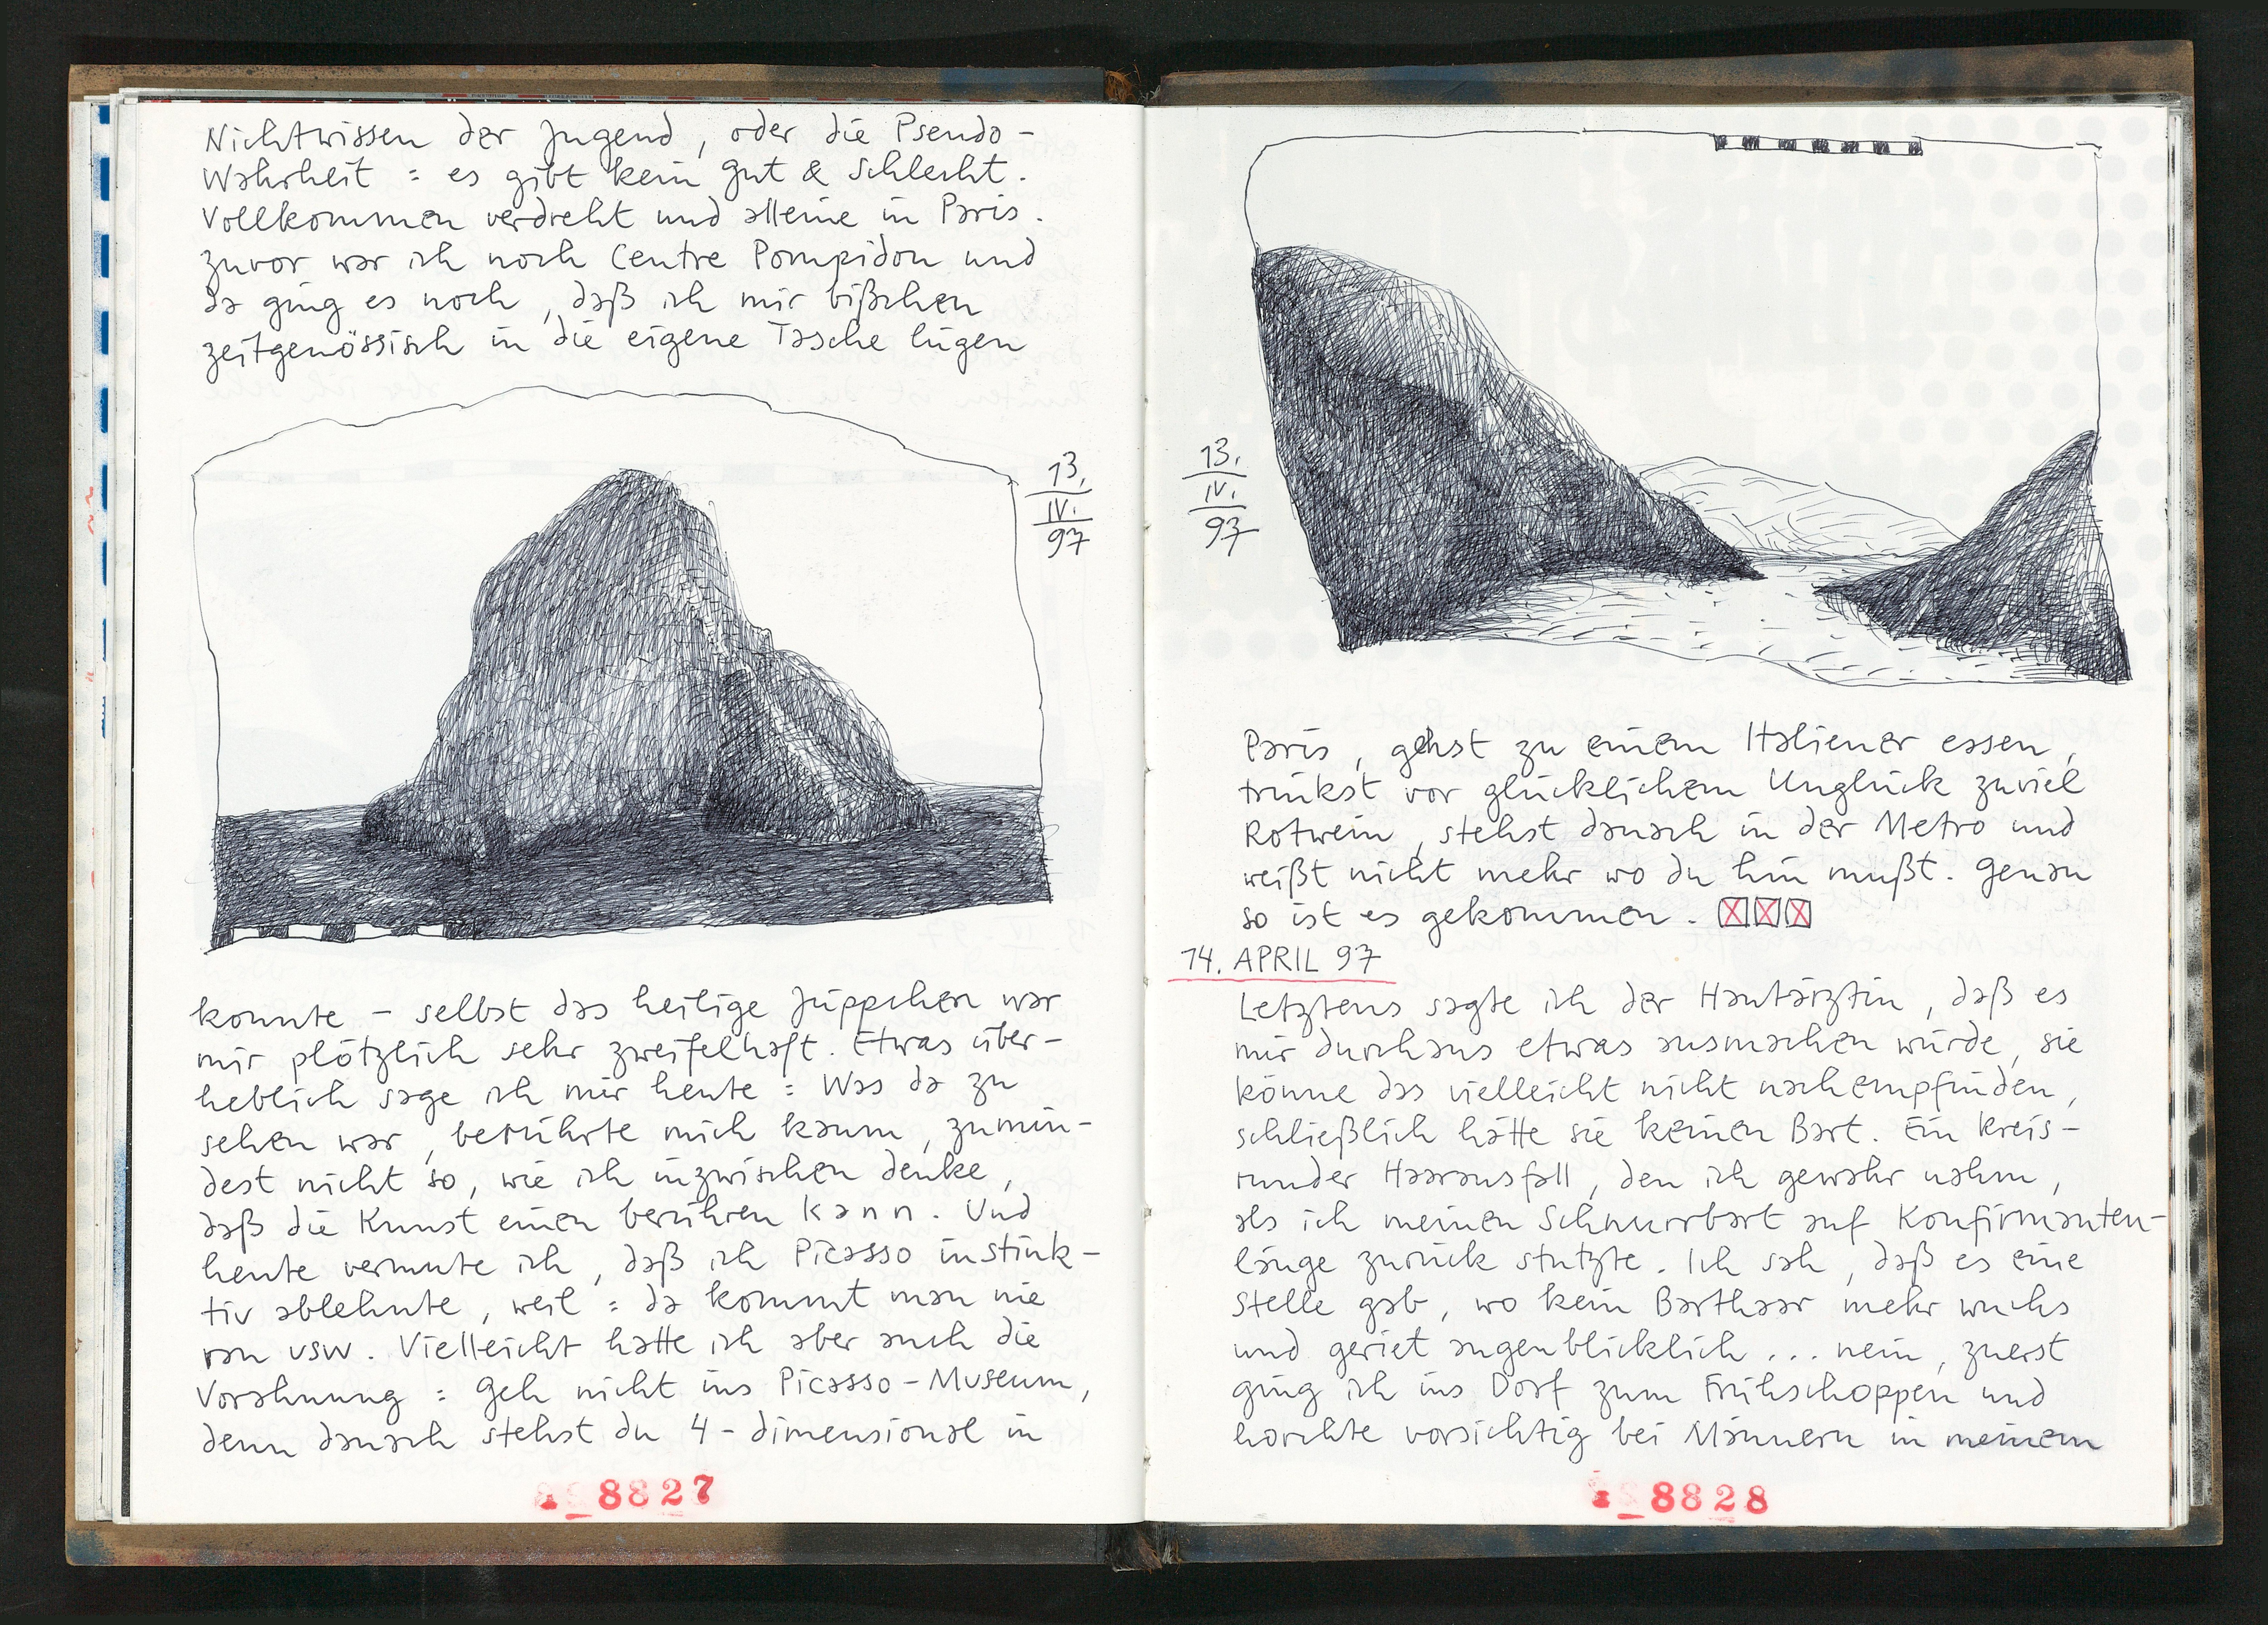 Nichtwissen der Jugend, oder die Pseudo-
Wahrheit : es gibt kein gut & schlecht.
Vollkommen verdreht und alleine in Paris.
Zuvor war ich noch Centre Pompidou und
da ging es noch, daß ich mir bißchen
zeitgenössisch in die eigene Tasche lügen
13.
IV.
97
konnte – selbst das heilige Jüppchen war
mir plötzlich sehr zweifelhaft. Etwas über-
heblich sage ich mir heute : Was da zu
sehen war, berührte mich kaum, zumin-
dest nicht so, wie ich inzwischen denke,
daß die Kunst einen berühren kann. Und
heute vermute ich, daß ich Picasso instink-
tiv ablehnte, weil : da kommt man nie
ran usw. Vielleicht hatte ich aber auch die
Vorahnung : Geh nicht ins Picasso-Museum,
denn danach stehst du 4-dimensional in
8827
13.
IV.
97
Paris, gehst zu einem Italiener essen,
trinkst vor glücklichem Unglück zuviel
Rotwein, stehst danach in der Metro und
weißt nicht mehr wo du hin mußt. Genau
so ist es gekommen.
14. APRIL 97
Letztens sagte ich der Hautärztin, daß es
mir durchaus etwas ausmachen würde, sie
könne das vielleicht nicht nachempfinden,
schließlich hätte sie keinen Bart. Ein kreis-
runder Haarausfall, den ich gewahr nahm,
als ich meinen Schnurrbart auf Konfirmanten-
länge zurück stutzte. Ich sah, daß es eine
Stelle gab, wo kein Barthaar mehr wuchs
und geriet augenblicklich ... nein, zuerst
ging ich ins Dorf zum Frühschoppen und
horchte vorsichtig bei Männern in meinem
8828